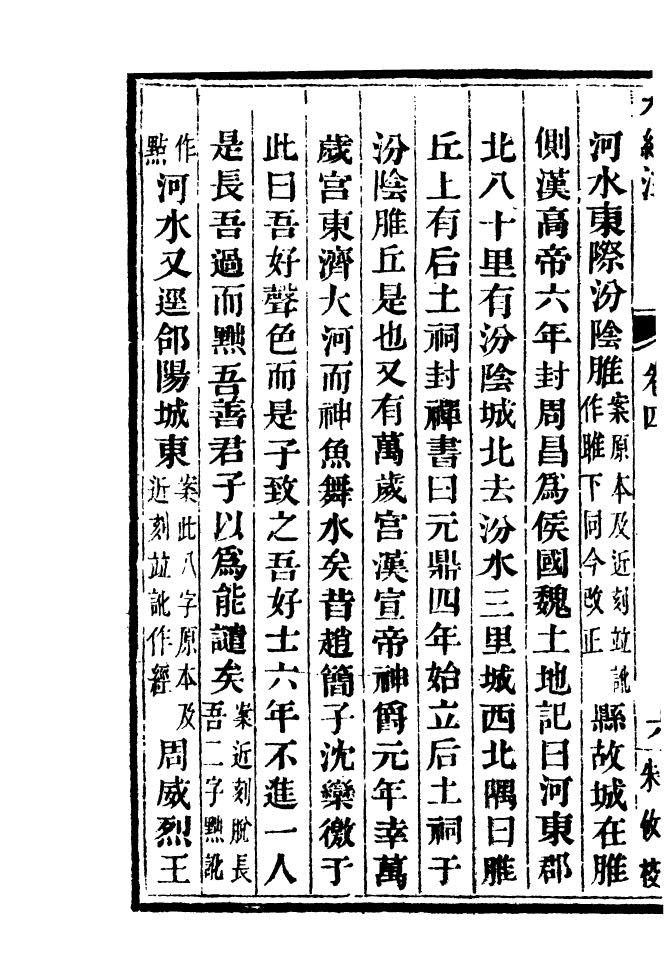 水經注 卷四 六 朱攸校
河水東際汾陰脽案原本及近刻竝訛作雎下同今改正縣故城在脽
側漢高帝六年封周昌爲侯國魏土地記曰河東郡
北八十里有汾陰城北去汾水三里城西北隅曰脽
丘上有后土祠封禪書曰元鼎四年始立后土祠于
汾陰脽丘是也又有萬歲宮漢宣帝神爵元年幸萬
歲宮東濟大河而神魚舞水矣昔趙簡子沈欒徼于
此曰吾好聲色而是子致之吾好士六年不進一人
是長吾過而黜吾善君子以爲能譴矣案近刻脫長吾二字黜訛
作點河水又逕郃陽城東案此八字原本及近刻竝訛作經周威烈王